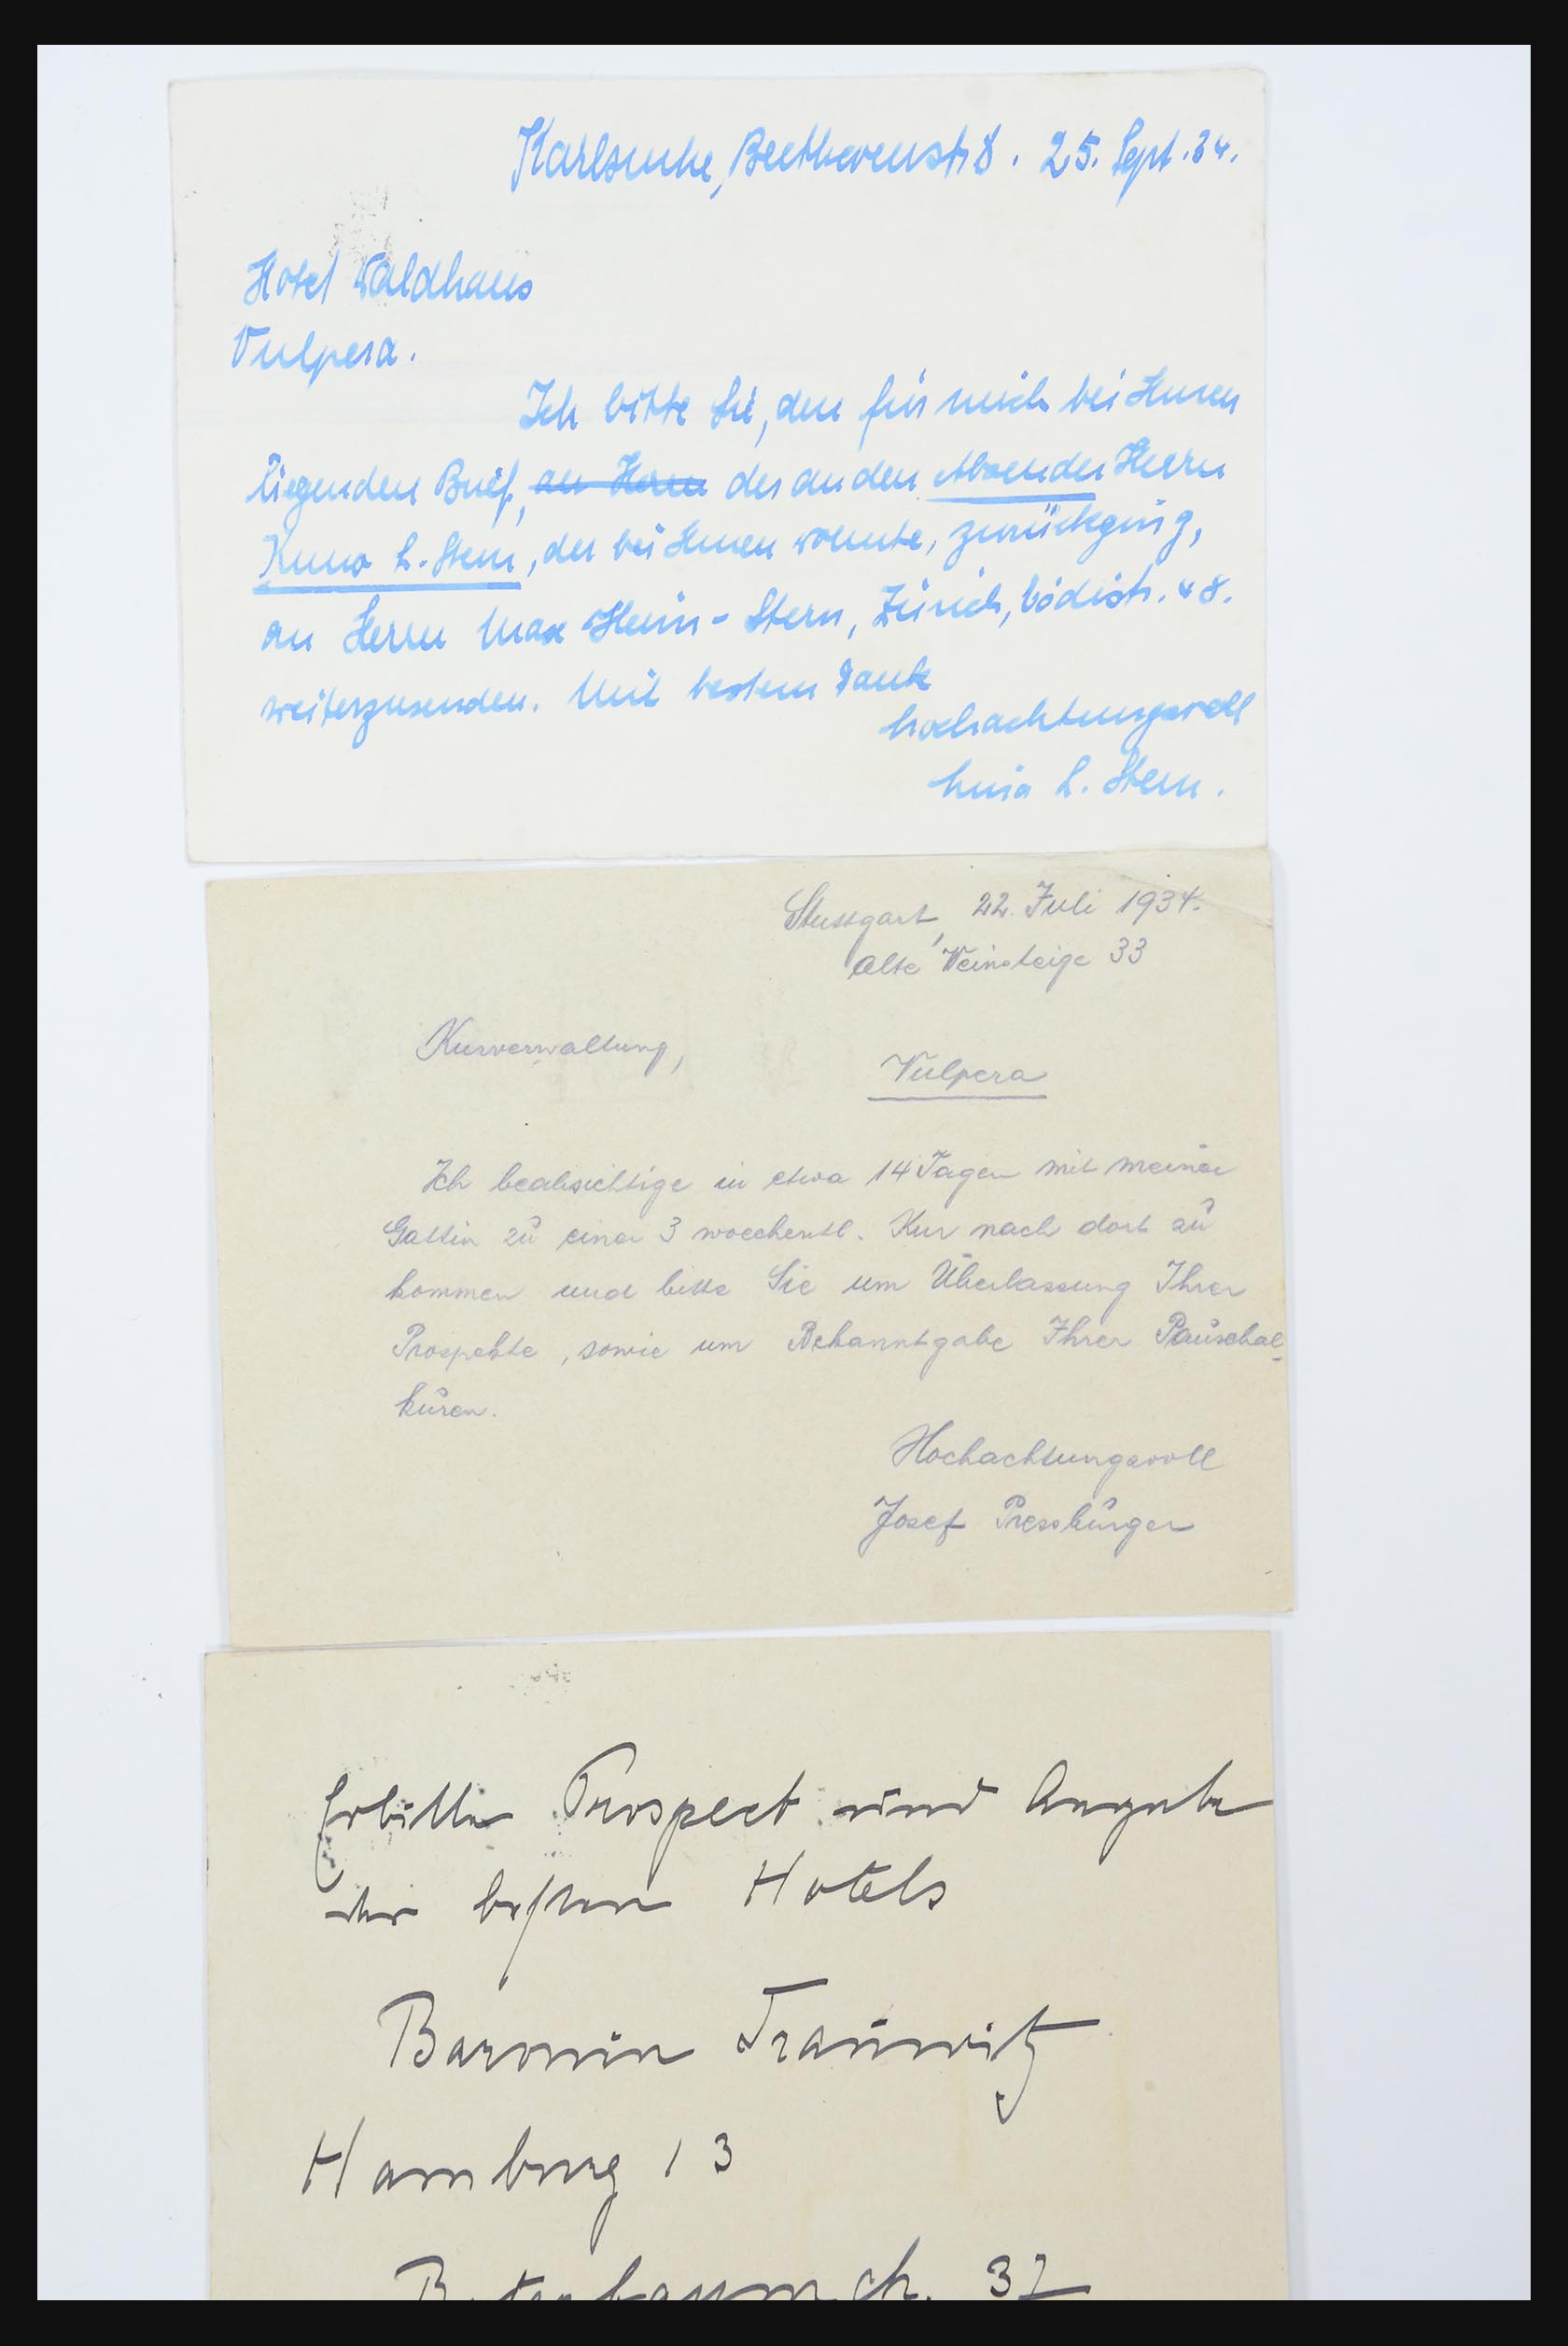 Karlsruhe, Beethovenstr 8. 25. Sept. 34.
Hotel Waldhaus
Vulpera.
Ich bitte Sie, den für mich bei Ihnen
liegenden Brief, an Herrn der an den Absender Herrn
Kuno L. Stern, der bei Ihnen wohnte, zurückging,
an Herrn Max Heim-Stern, Zürich, 48.
weiterzusenden. Mit bestem Dank
hochachtungsvoll
L. Stern.
Stuttgart, 22. Juli 1934.
Alte Weinsteige 33
Kurverwaltung,
Vulpera
Ich beabsichtige in etwa 14 Tagen mit meiner
Gattin zu einer 3 woechentl. Kur nach dort zu
kommen und bitte Sie um Überlassung Ihrer
Prospekte, sowie um Bekanntgabe Ihrer Pauschal-
kuren.
Hochachtungsvoll
Josef Pressburger
Erbitte Prospect und Angabe
der besten Hotels
Baronin
Hamburg 13
37